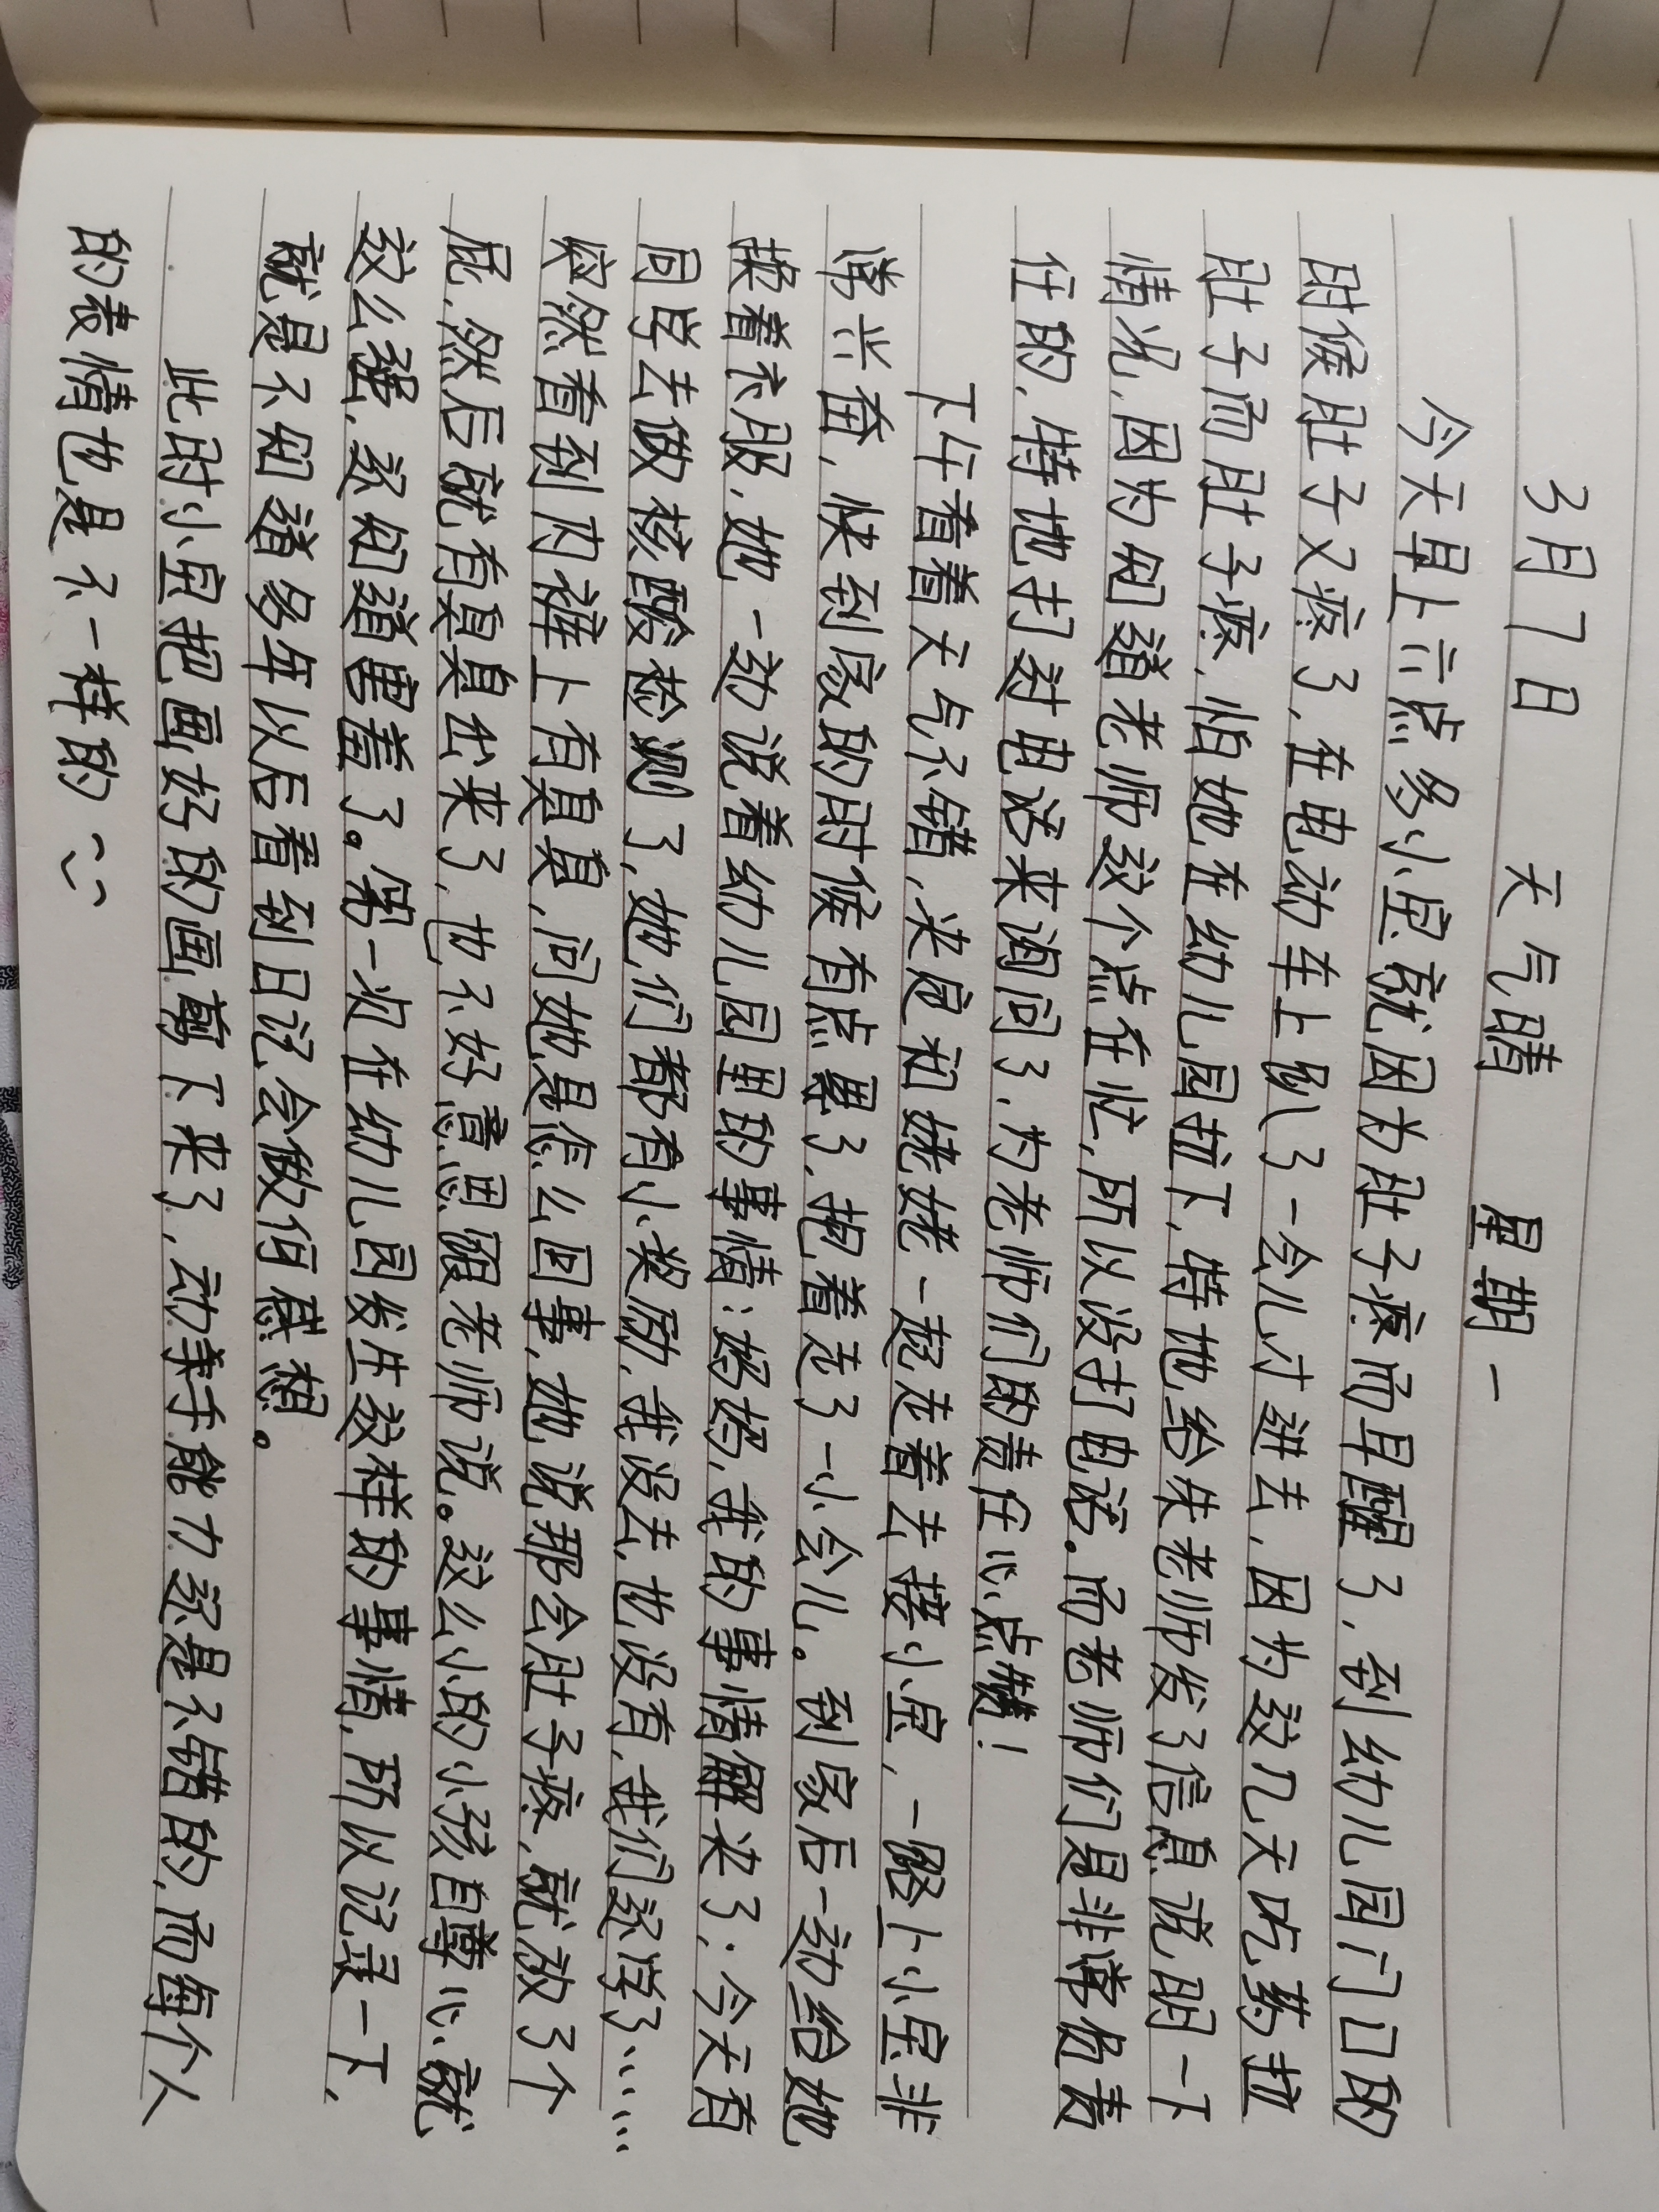 3月7日 天气晴 星期一
今天早上六点多小宝就因为肚子疼而早醒了,到幼儿园门口的
时候肚子又疼了,在电动车上趴了一会儿才进去,因为这几天吃药拉
肚子而肚子疼,怕她在幼儿园拉下,特地给朱老师发了信息说明一下
情况,因为知道老师这个点在忙,所以没打电话。而老师们是非常负责
任的,特地打过电话来询问了,为老师们的责任心点赞!
下午看着天气不错,决定和姥姥一起走着去接小宝,一路上小宝非
常兴奋,快到家的时候有点累了,抱着走了一小会儿。到家后一边给她
换着衣服,她一边说着幼儿园里的事情:妈妈,我的事情解决了;今天有
同学去做核酸检测了,她们都有小奖励,我没去,也没有,我们还学了……
突然看到内裤上有臭臭,问她是怎么回事,她说那会肚子疼,就放了个
屁,然后就有臭臭出来了,也不好意思跟老师说。这么小的小孩自尊心就
这么强,还知道害羞了。第一次在幼儿园发生这样的事情,所以记录一下,
就是不知道多年以后看到日记会做何感想。
此时小宝把画好的画剪下来了,动手能力还是不错的,而每个人
的表情也是不一样的